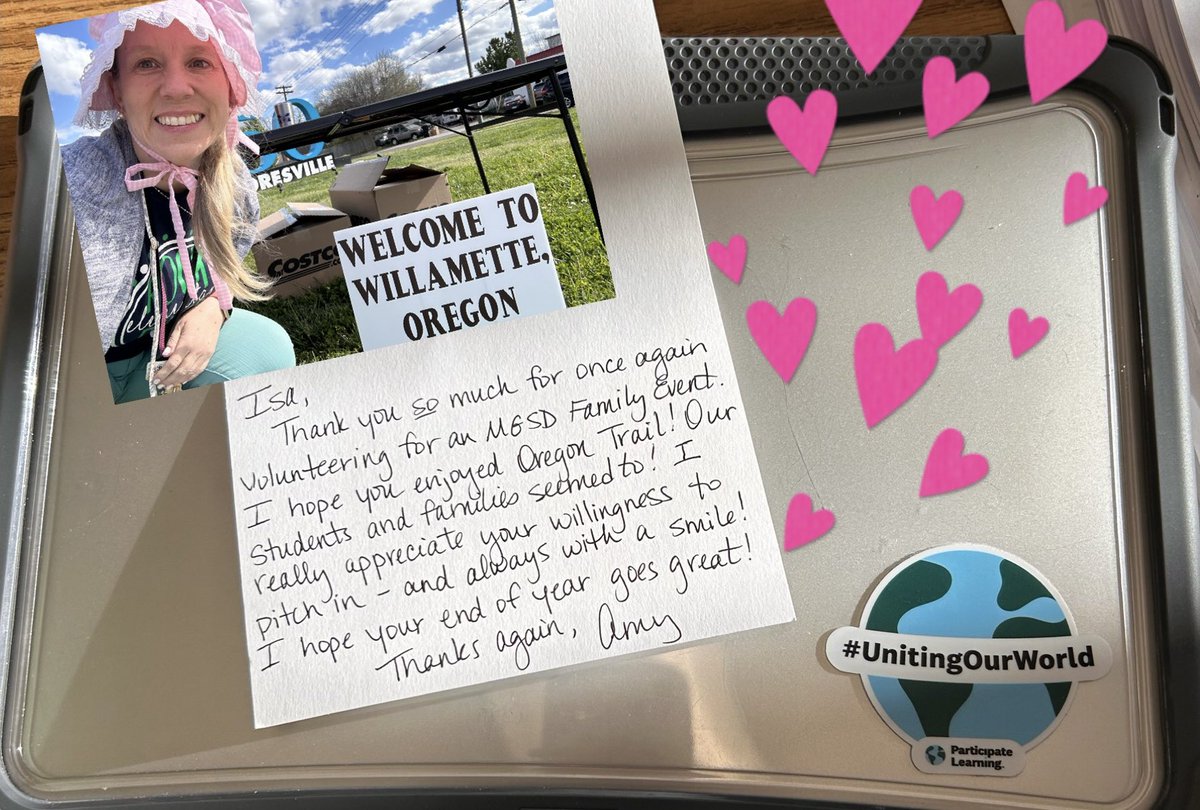 CO
ORESVILLE
COSTCO
WELCOME TO
WILLAMETTE,
OREGON
Isa,
Thank you so much for once again
volunteering for an MGSD Family Event.
I hope you enjoyed Oregon Trail! Our
students and families seemed to! I
really appreciate your willingness to
pitch in - and always with a smile!
I hope your end of year goes great!
Thanks again, Amy
#UnitingOurWorld
Participate
Learning.